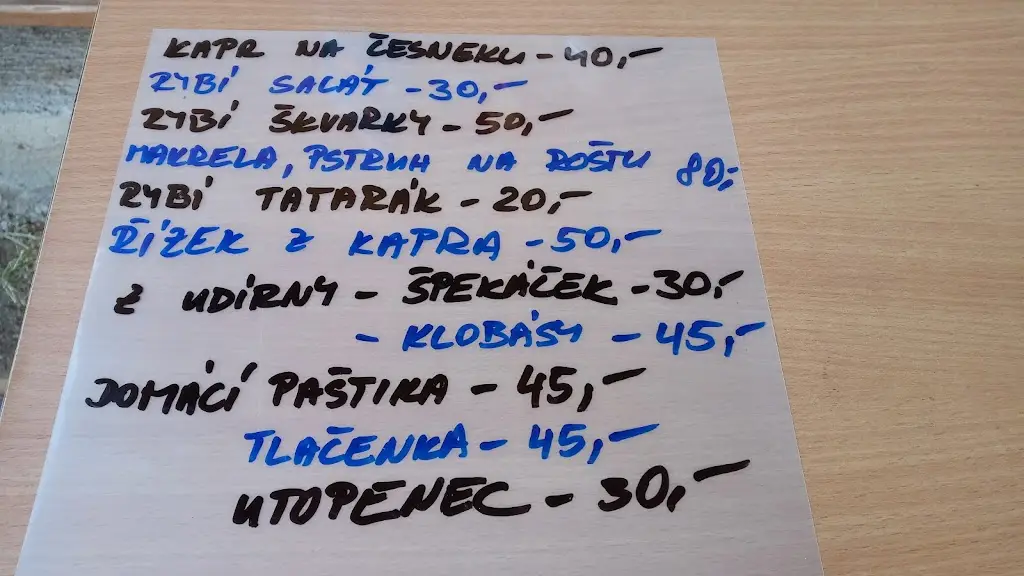 KAPR NA ČESNEKU - 40,-
RYBÍ SALÁT - 30,-
RYBÍ ŠKVARKY - 50,-
MAKRELA, PSTRUH NA ROŠTU 80,-
RYBÍ TATARÁK - 20,-
ŘÍZEK Z KAPRA - 50,-
Z UDÍRNY - ŠPEKÁČEK - 30,-
- KLOBÁSY - 45,-
DOMÁCÍ PAŠTIKA - 45,-
TLAČENKA - 45,-
UTOPENEC - 30,-